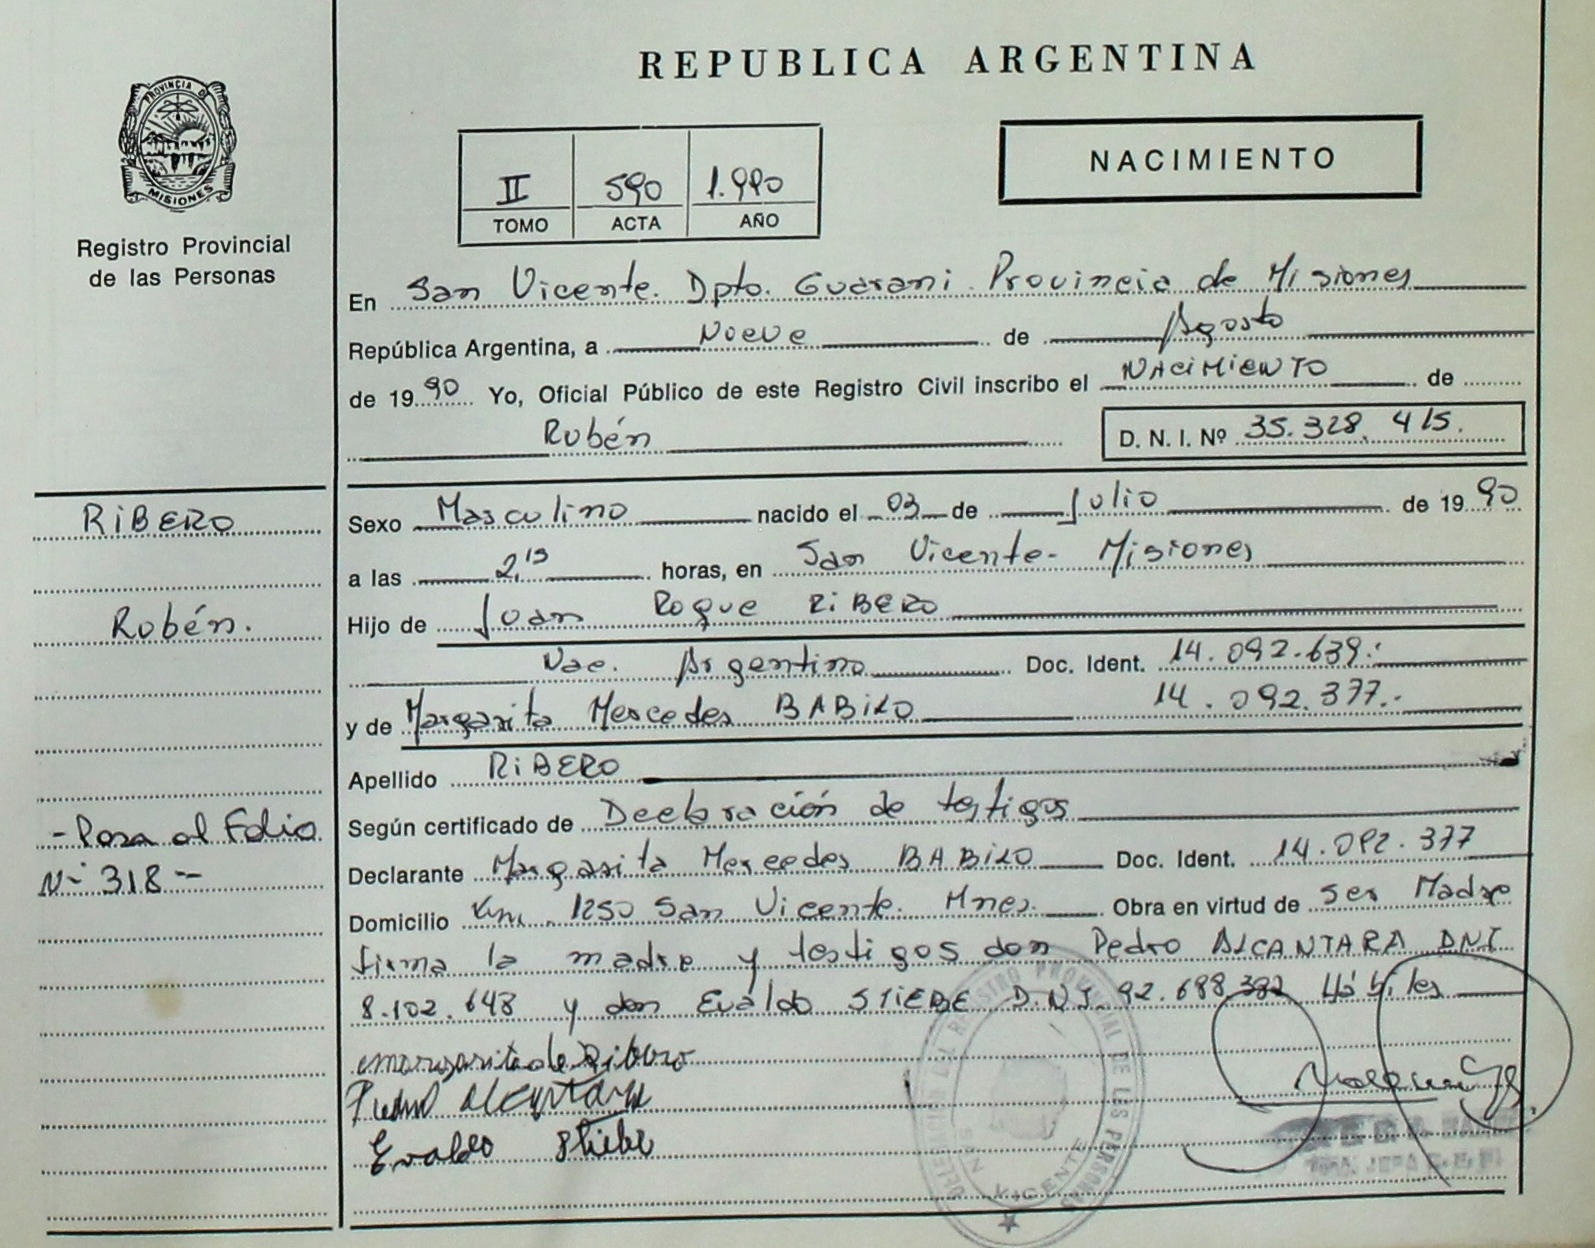 REPUBLICA ARGENTINA
PROVINCIA D
MISIONES
Registro Provincial
de las Personas
II 590 1.990
TOMO ACTA AÑO
NACIMIENTO
En San Vicente. Dpto. Guarani. Provincia de Misiones
República Argentina, a Nueve de Agosto
de 1990 Yo, Oficial Público de este Registro Civil inscribo el NACIMIENTO de
Rubén D. N. I. Nº 35.328.415.
RIBERO
Rubén.
- Pasa al Folio
Nº 318 -
Sexo Masculino nacido el 03 de Julio de 1990
a las 2,15 horas, en San Vicente - Misiones
Hijo de Juan Roque RIBERO
Nac. Argentino Doc. Ident. 14.092.639.-
y de Margarita Mercedes BABILO 14.092.377.-
Apellido RIBERO
Según certificado de Declaración de testigos
Declarante Margarita Mercedes BABILO Doc. Ident. 14.092.377
Domicilio Km. 1250 San Vicente. Mnes. Obra en virtud de ser Madre
firma la madre y testigos don Pedro ALCANTARA DNI
8.102.648 y don Evaldo STIEBE D.N.I. 92.688.382 Hábiles
margarita de Ribero
Pedro Alcantara
Evaldo Stiebe
DELEGACION DEL REGISTRO PROVINCIAL DE LAS PERSONAS
SAN VICENTE